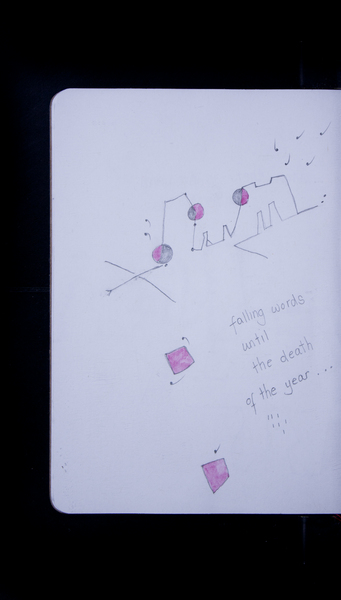 falling words
until
the death
of the year ...